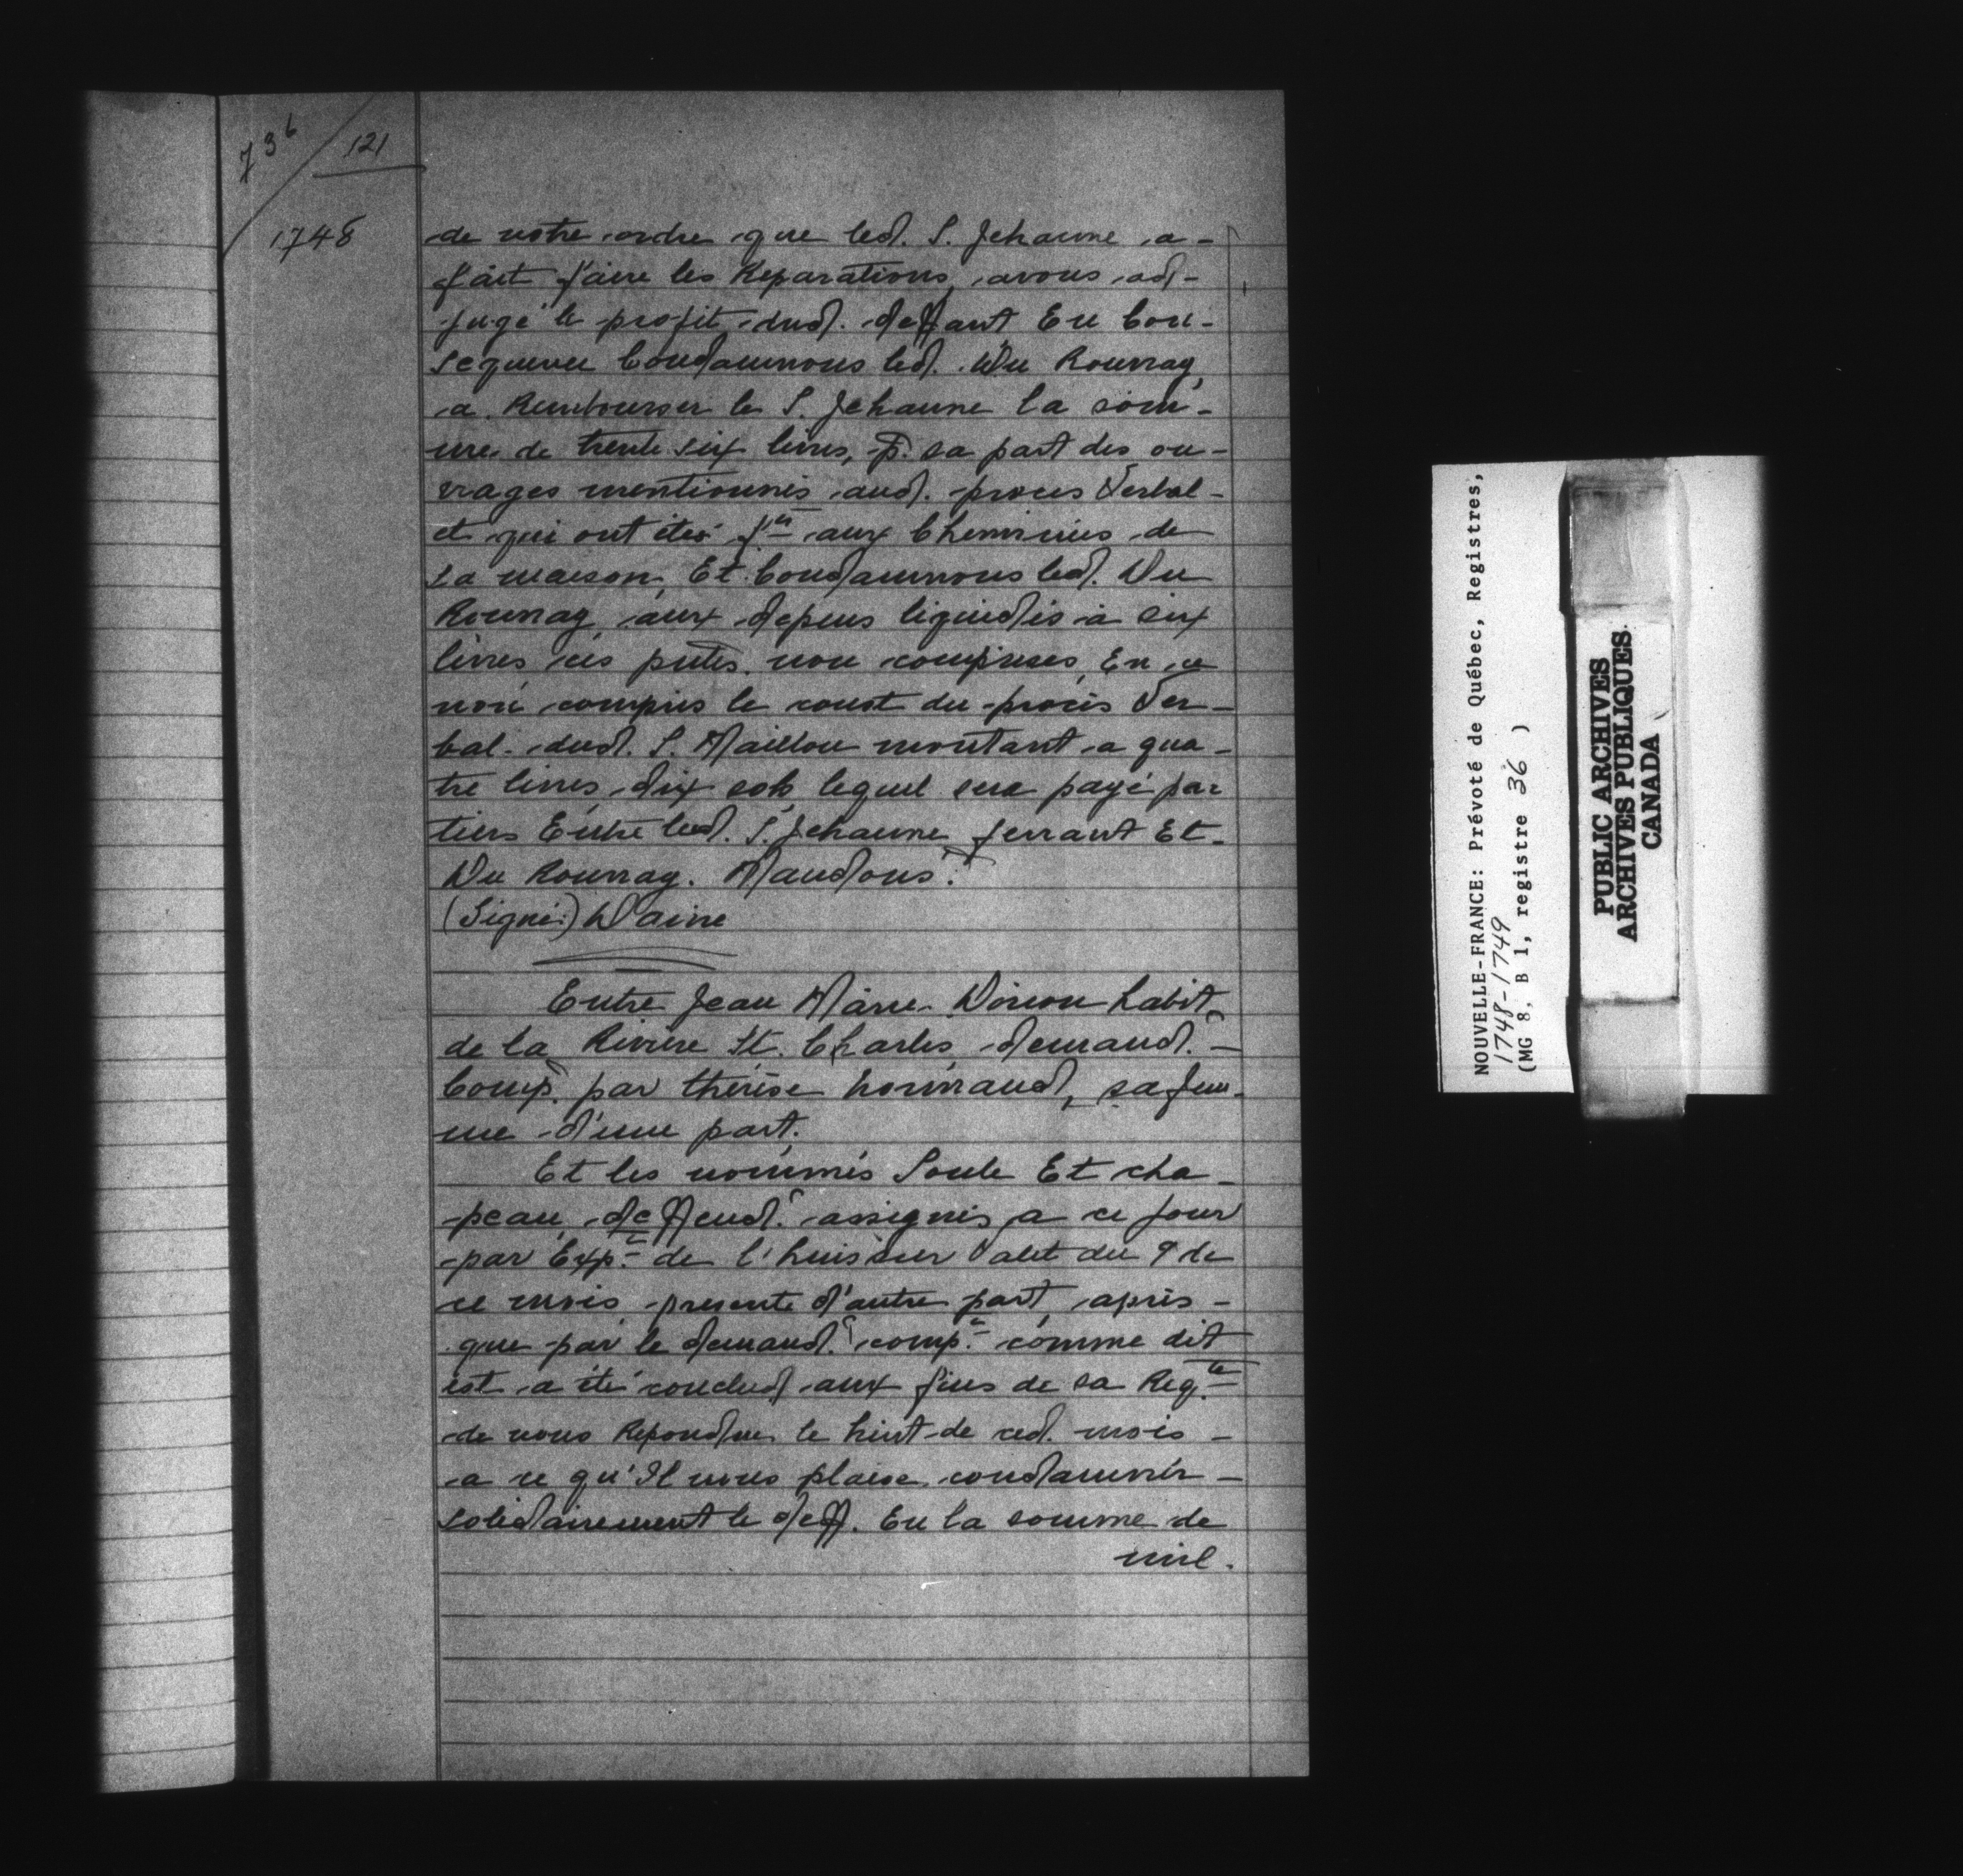 736 / 121
1748
de notre ordre que led. S. Jehanne a-
fait faire les Reparations, avons ad-
jugé le profit dud. deffaut En Con-
sequence Condamnons led. Du Rouvray
a Rembourser le S. Jehanne la som-
me de trente six livres, p. sa part des ou-
vrages mentionnés aud. proces Verbal-
et qui ont étés f.es aux Cheminées de
sa maison Et Condamnons led. Du
Rouvray aux depens liquidés à six
livres ces pntes. non comprises En ce
non compris le coust du procès Ver-
bal dud. S. Maillou montant a qua-
tre livres dix sols lequel sera payé par
tiers Entre led. S. Jehanne ferrant Et-
Du Rouvray. Mandons.
(Signé:) Daine
Entre Jean Marie Dorion habit.
de la Rivière St. Charles demand.r -
Comp. par thérèse normand, sa fem-
me d'une part.
Et les nommés Soule Et cha-
peau deffend.r assignés a ce jour
par Exp.t de l'huissier Valet du 9 de
ce mois presente d'autre part, après-
que par le demand.r comp.t comme dit
est a été conclud aux fins de sa Req.te
de nous Repondue le huit de ced. mois -
a ce qu'Il nous plaise condamner -
solidairement le deff. En la somme de
mil.
NOUVELLE-FRANCE: Prévoté de Québec, Registres,
1748-1749
(MG 8, B 1, registre 36 )
PUBLIC ARCHIVES
ARCHIVES PUBLIQUES
CANADA